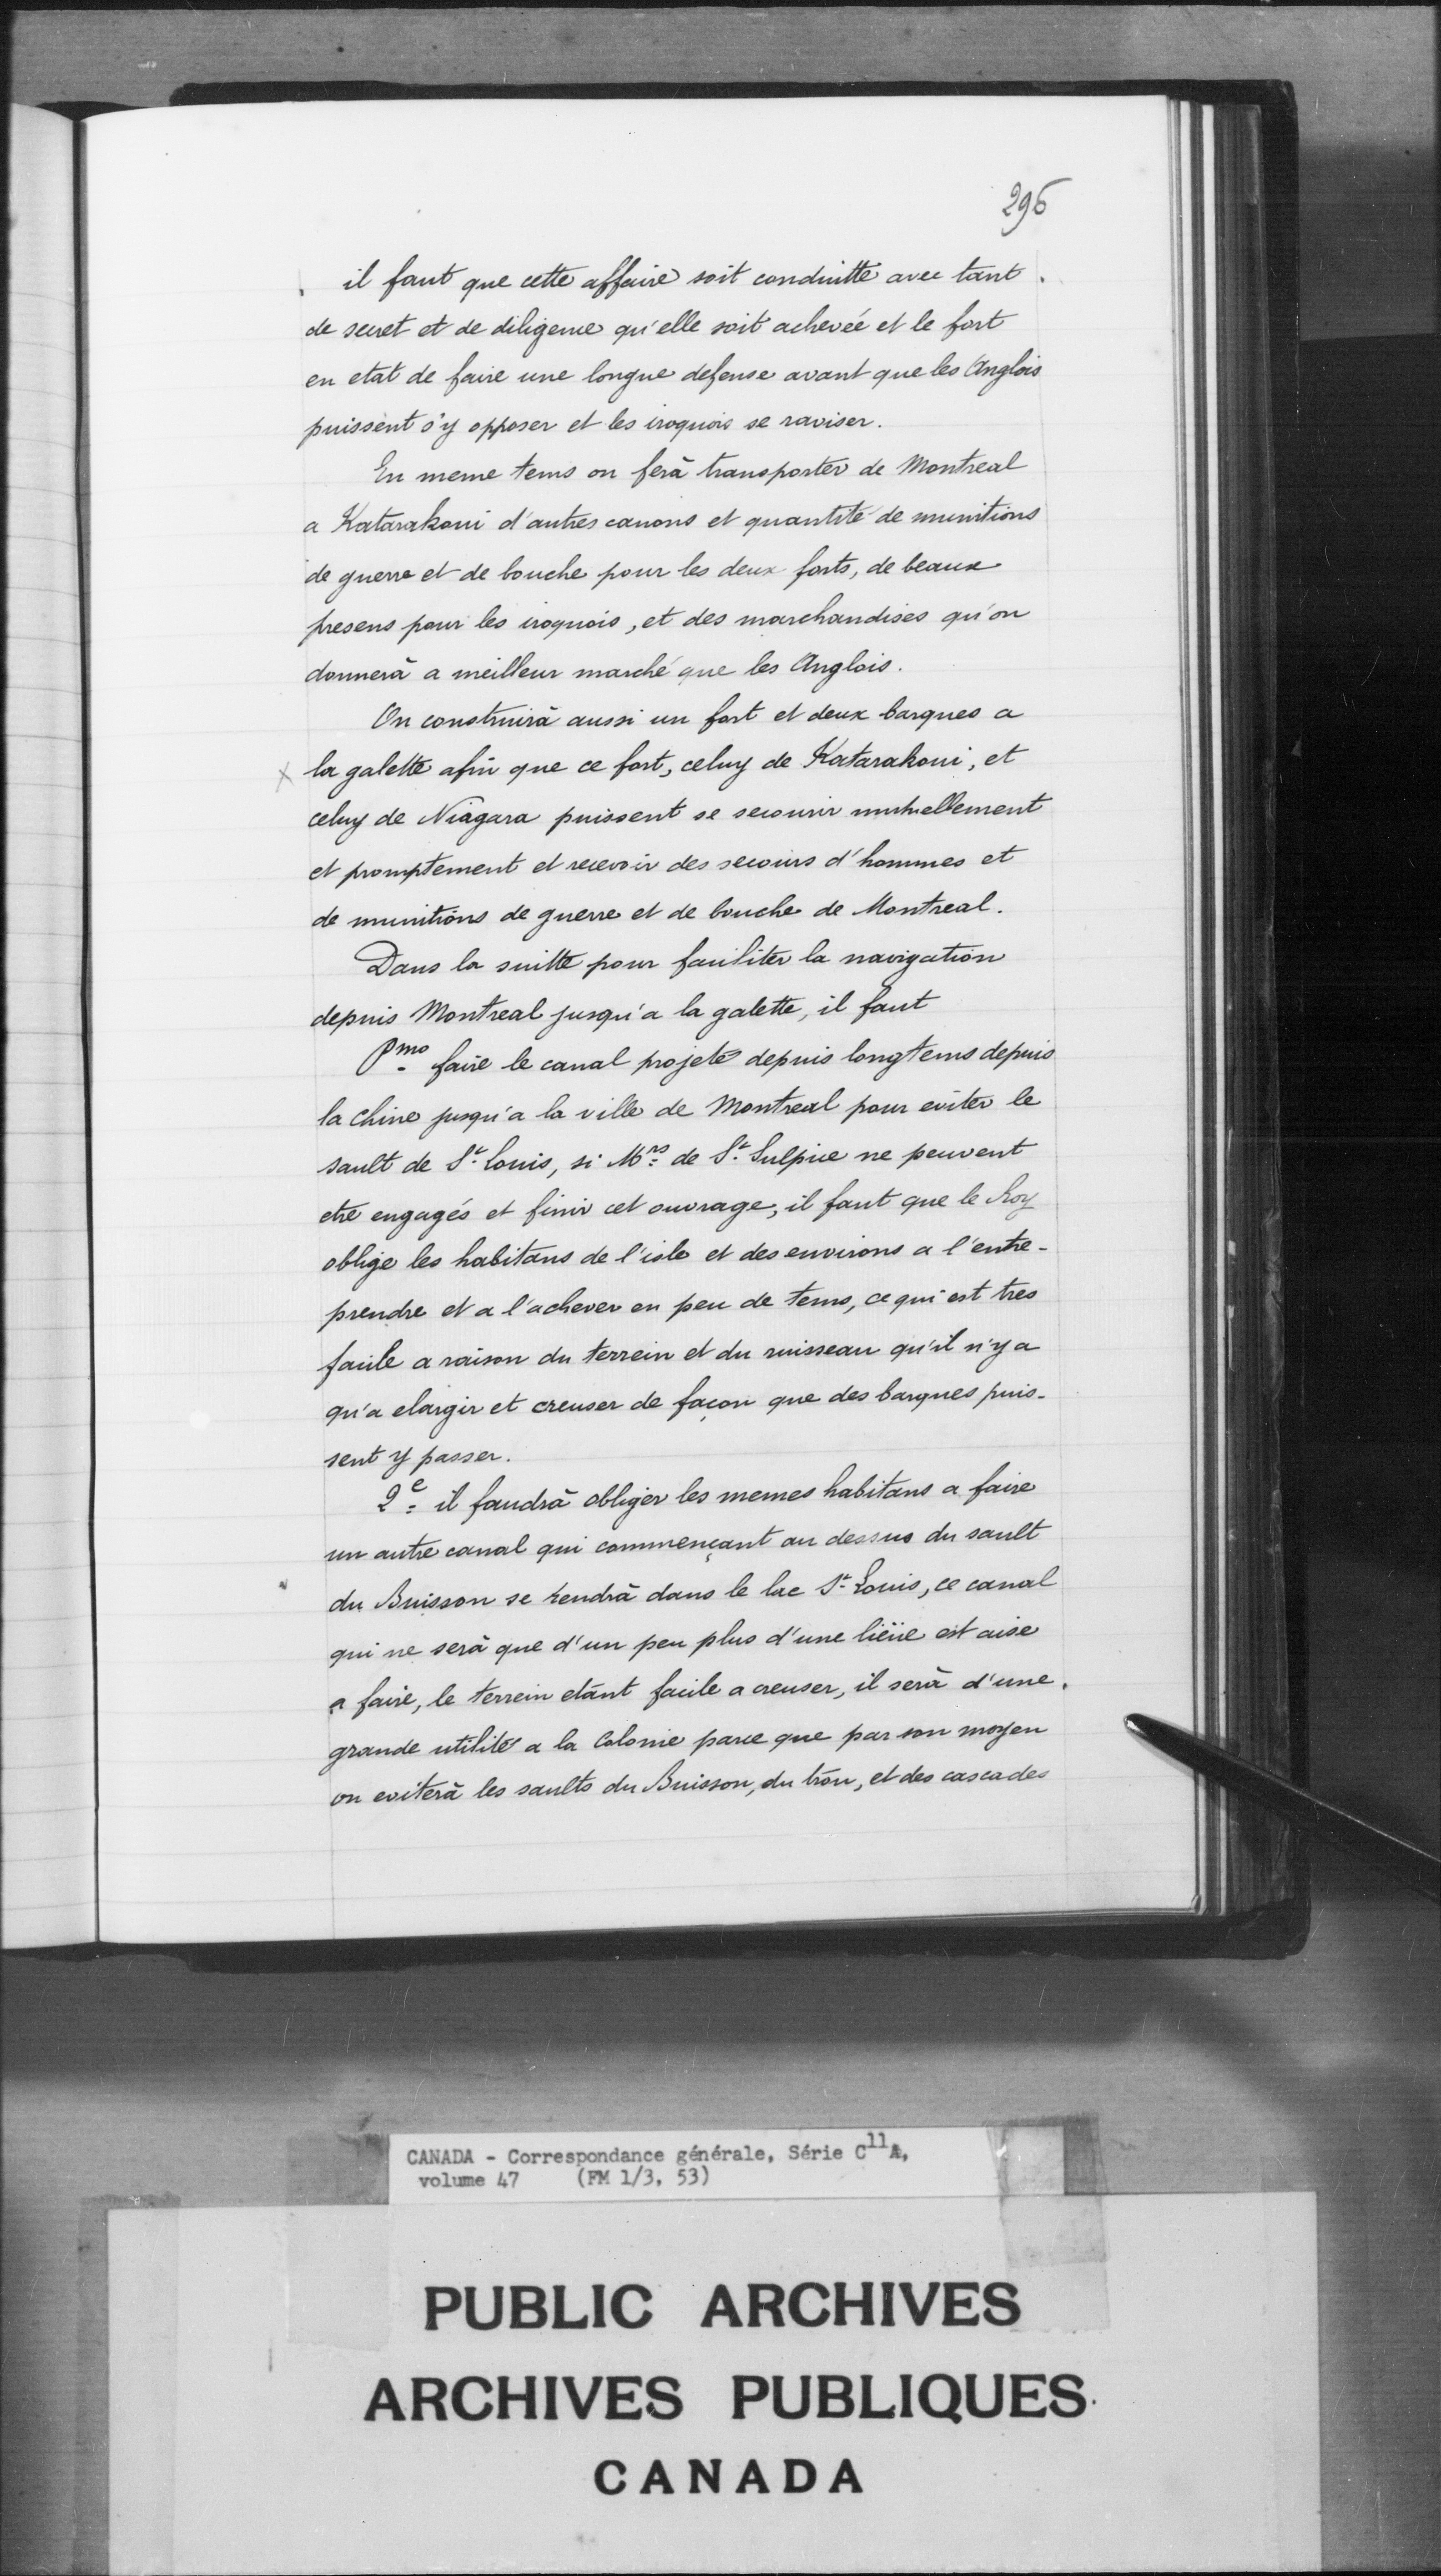 296
il faut que cette affaire soit conduitte avec tant
de secret et de diligence qu'elle soit achevéé et le fort
en etat de faire une longue defense avant que les Anglois
puissent s'y opposer et les iroquois se raviser.
En meme tems on ferà transporter de Montreal
a Katarakoui d'autres canons et quantité de munitions
de guerre et de bouche pour les deux forts, de beaux
presens pour les iroquois, et des marchandises qu'on
donnerà a meilleur marché que les Anglois.
On construirà aussi un fort et deux barques a
x la galette afin que ce fort, celuy de Katarakoui, et
celuy de Niagara puissent se secourir mutuellement
et promptement et recevoir des secours d'hommes et
de munitions de guerre et de bouche de Montreal.
Dans la suitte pour faciliter la navigation
depuis Montreal jusqu'a la galette, il faut
Pmo faire le canal projeté depuis longtems depuis
la Chine jusqu'a la ville de Montreal pour eviter le
sault de St Louis, si Mrs de St Sulpice ne peuvent
etre engagés et finir cet ouvrage, il faut que le Roy
oblige les habitans de l'isle et des environs a l'entre-
prendre et a l'achever en peu de tems, ce qui est tres
facile a raison du terrein et du ruisseau qu'il n'y a
qu'a elargir et creuser de façon que des barques puis-
sent y passer.
2e il faudrà obliger les memes habitans a faire
un autre canal qui commençant au dessus du sault
du Buisson se rendrà dans le lac St Louis, ce canal
qui ne serà que d'un peu plus d'une lieüe est aise
a faire, le terrein etant facile a creuser, il serà d'une
grande utilité a la Colonie parce que par son moyen
on eviterà les saults du Buisson, du trou, et des cascades
CANADA - Correspondance générale, Série C11A,
volume 47 (FM 1/3, 53)
PUBLIC ARCHIVES
ARCHIVES PUBLIQUES
CANADA